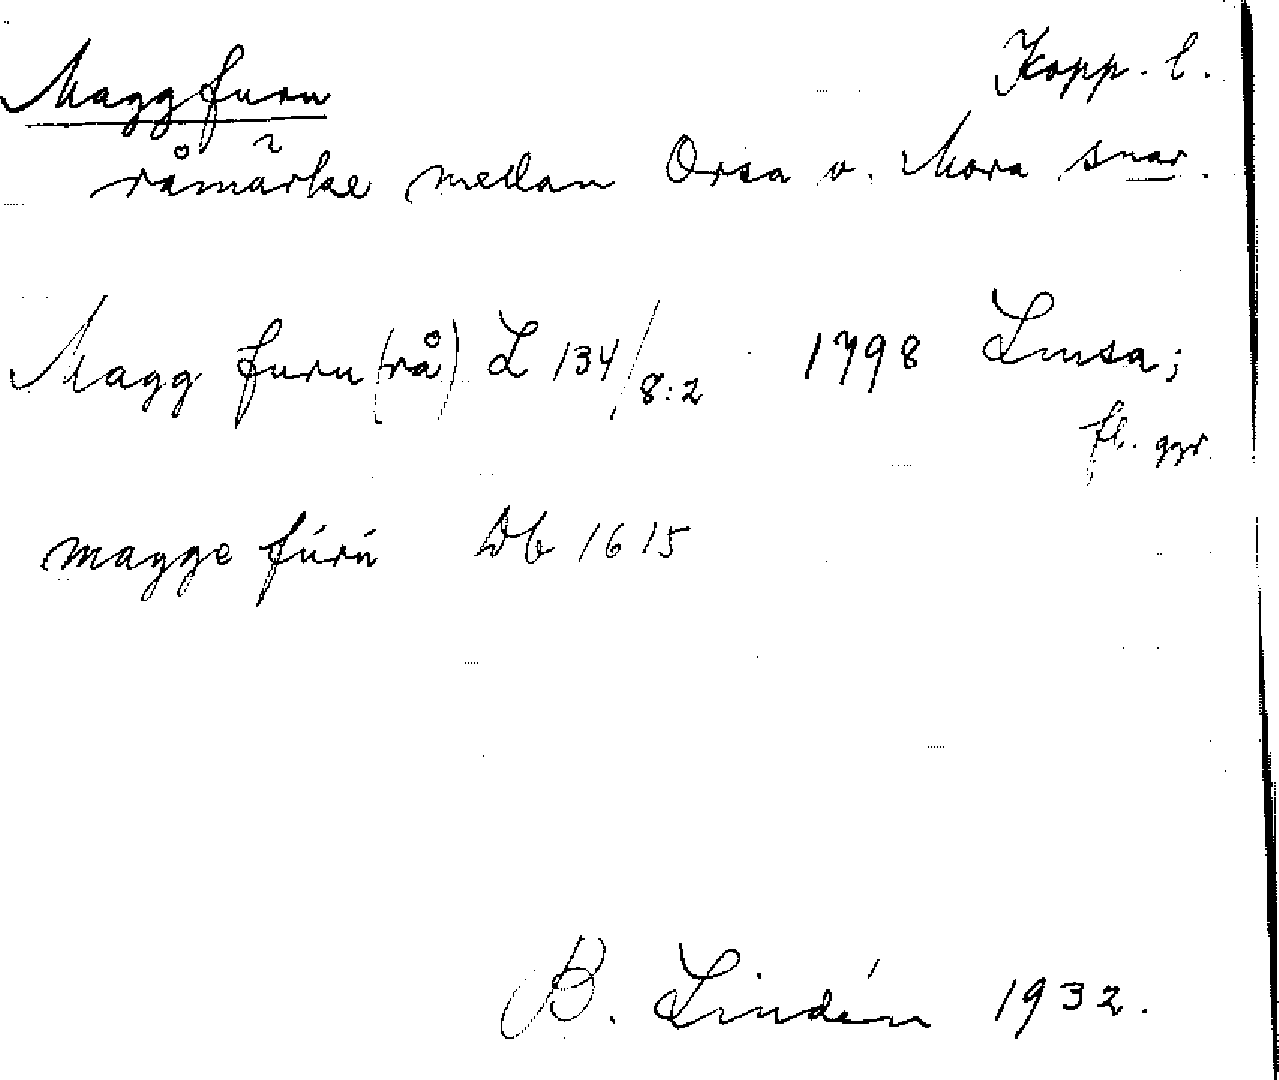 Maggfuru
Kopp. l.
råmärke mellan Orsa o. Mora snar.
Magg furu (rå) L 134/8:2 1798 Lmsa;
fl. ggr
magge fúrú Db 1615
B. Lindén 1932.